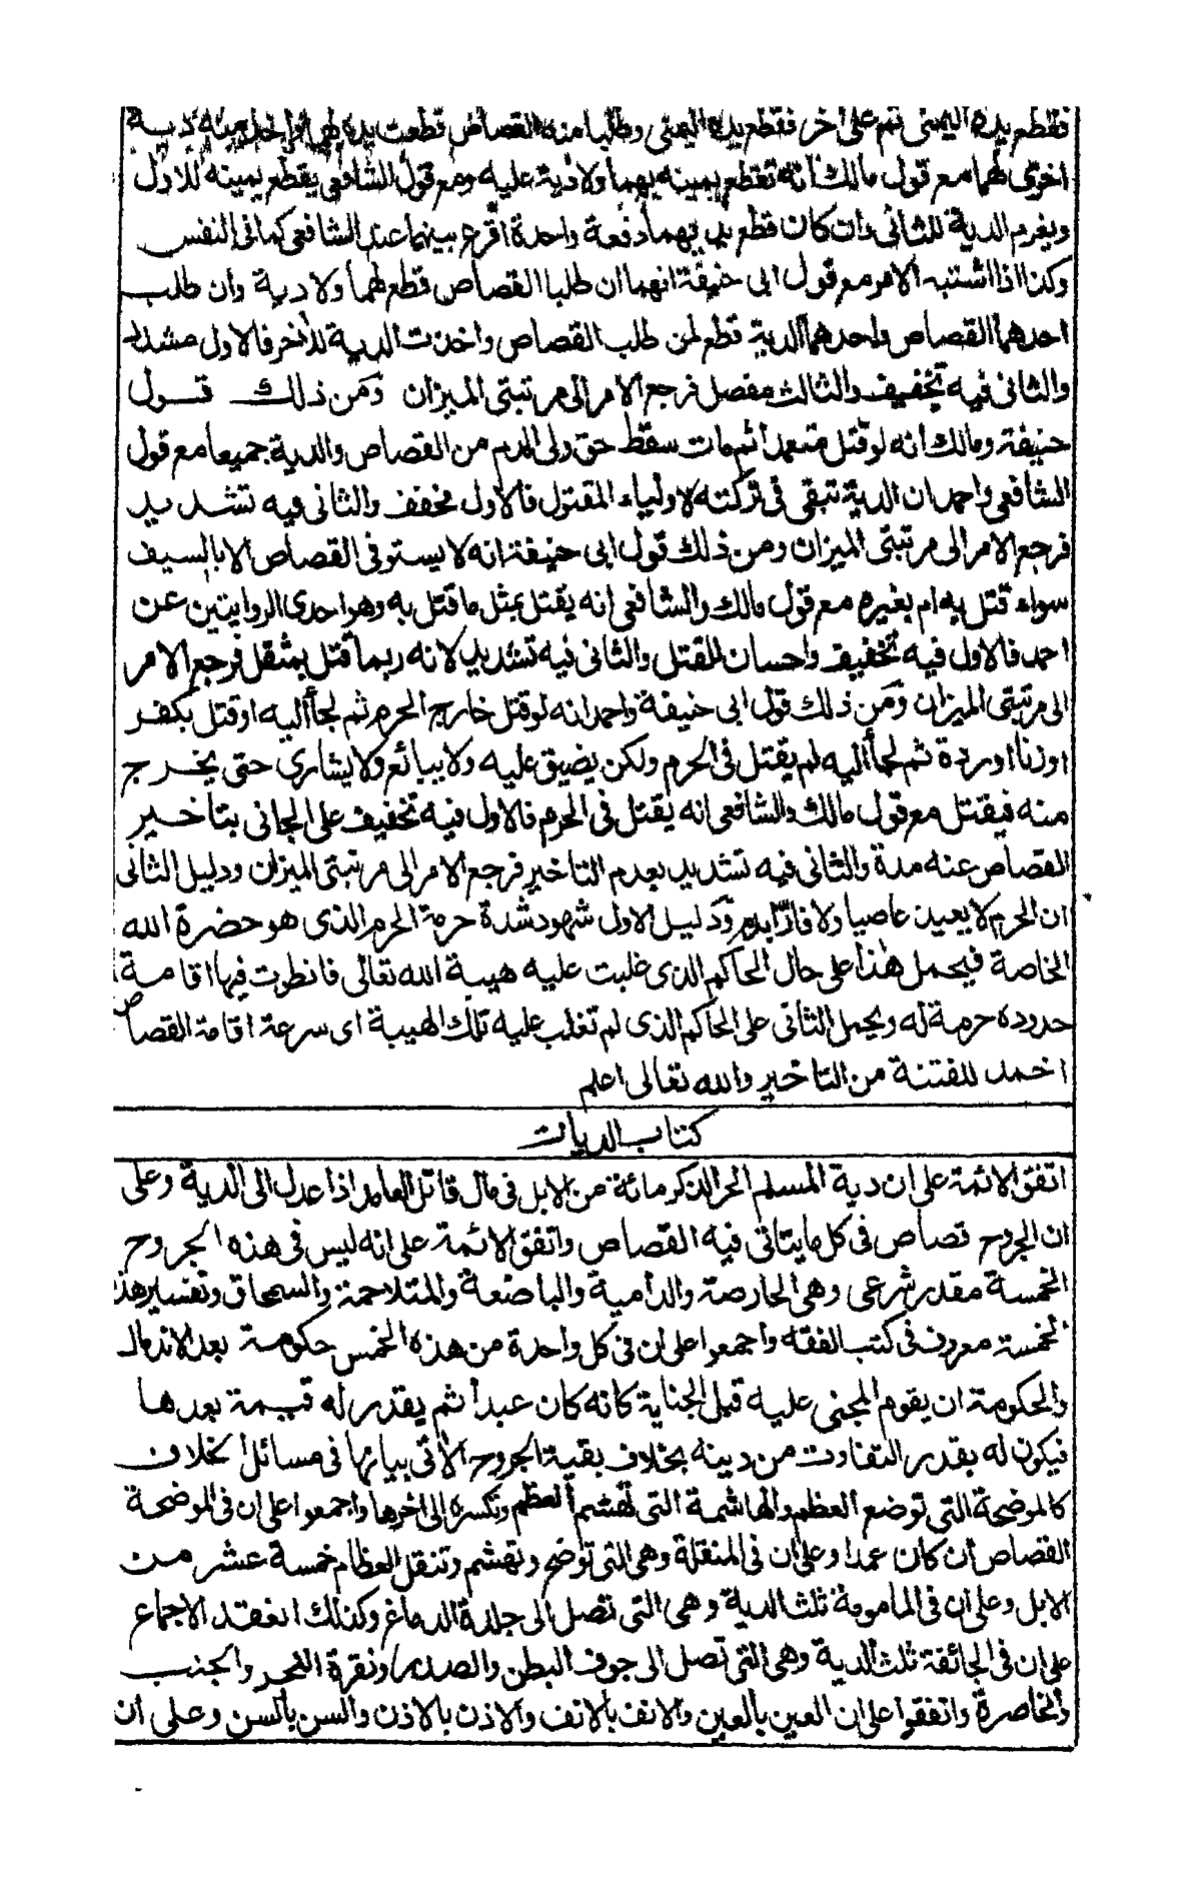 فقطع يده اليمنى ثم على آخر فقطع يده اليمنى وطلبا منه القصاص قطعت يده لهما واخذ منه دية
اخرى لهما مع قول مالك انه تقطع يمينه بهما ولا دية عليه ومع قول الشافعى يقطع يمينه للاول
ويغرم الدية للثانى وان كان قطع يديهما دفعة واحدة اقرع بينهما عند الشافعى كما فى النفس
وكذا اذا اشتبه الامر مع قول ابى حنيفة انهما ان طلبا القصاص قطع لهما ولا دية وان طلب
احدهما القصاص واحدهما الدية قطع لمن طلب القصاص واخذت الدية للآخر فالاول مشدد
والثانى فيه تخفيف والثالث مفصل فرجع الامر الى مرتبتى الميزان ومن ذلك قول
حنيفة ومالك انه لو قتل متعمدا ثم مات سقط حق ولى الدم من القصاص والدية جميعا مع قول
الشافعى واحمد ان الدية تبقى فى تركته لاولياء المقتول فالاول مخفف والثانى فيه تشديد
فرجع الامر الى مرتبتى الميزان ومن ذلك قول ابى حنيفة انه لا يستوفى القصاص الا بالسيف
سواء قتل به ام بغيره مع قول مالك والشافعى انه يقتل بمثل ما قتل به وهو احدى الروايتين عن
احمد فالاول فيه تخفيف واحسان للمقتل والثانى فيه تشديد لانه ربما قتل بمثقل فرجع الامر
الى مرتبتى الميزان ومن ذلك قول ابى حنيفة واحمد انه لو قتل خارج الحرم ثم لجأ اليه او قتل بكفر
او زنا او ردة ثم لجأ اليه لم يقتل فى الحرم ولكن يضيق عليه ولا يبائع ولا يشارى حتى يخرج
منه فيقتل مع قول مالك والشافعى انه يقتل فى الحرم فالاول فيه تخفيف على الجانى بتاخير
القصاص عنه مدة والثانى فيه تشديد بعدم التاخير فرجع الامر الى مرتبتى الميزان ودليل الثانى
ان الحرم لا يعيذ عاصيا ولا فارّا بدم ودليل الاول شهود شدة حرمة الحرم الذى هو حضرة الله
الخاصة فيحمل هذا على حال الحاكم الذى غلبت عليه هيبة الله تعالى فانطوت فيها اقامة
حدوده حرمة له ويحمل الثانى على الحاكم الذى لم تغلب عليه تلك الهيبة اى سرعة اقامة القصاص
اخمد للفتنة من التاخير والله تعالى اعلم
كتاب الديات
اتفق الائمة على ان دية المسلم الحر الذكر مائة من الابل فى مال قاتل العامد اذا عدل الى الدية وعلى
ان الجروح قصاص فى كل ما يتاتى فيه القصاص واتفق الائمة على انه ليس فى هذه الجروح
الخمسة مقدر شرعى وهى الحارصة والدامية والباضعة والمتلاحمة والسمحاق وتفسير هذه
الخمسة معروف فى كتب الفقه واجمعوا على ان فى كل واحدة من هذه الخمس حكومة بعد الاندمال
والحكومة ان يقوم المجنى عليه قبل الجناية كانه كان عبدا ثم يقدر له قيمة بعدها
فيكون له بقدر التفاوت من ديته بخلاف بقية الجروح الآتى بيانها فى مسائل الخلاف
كالموضحة التى توضح العظم والهاشمة التى تهشم العظم وتكسره الى اخرها واجمعوا على ان فى الموضحة
القصاص ان كان عمدا وعلى ان فى المنقلة وهى التى توضح وتهشم وتنقل العظام خمسة عشر من
الابل وعلى ان فى المامومة ثلث الدية وهى التى تصل الى جلدة الدماغ وكذلك انعقد الاجماع
على ان فى الجائفة ثلث الدية وهى التى تصل الى جوف البطن والصدر ونقرة النحر والجنب
والخاصرة واتفقوا على ان العين بالعين والانف بالانف والاذن بالاذن والسن بالسن وعلى ان